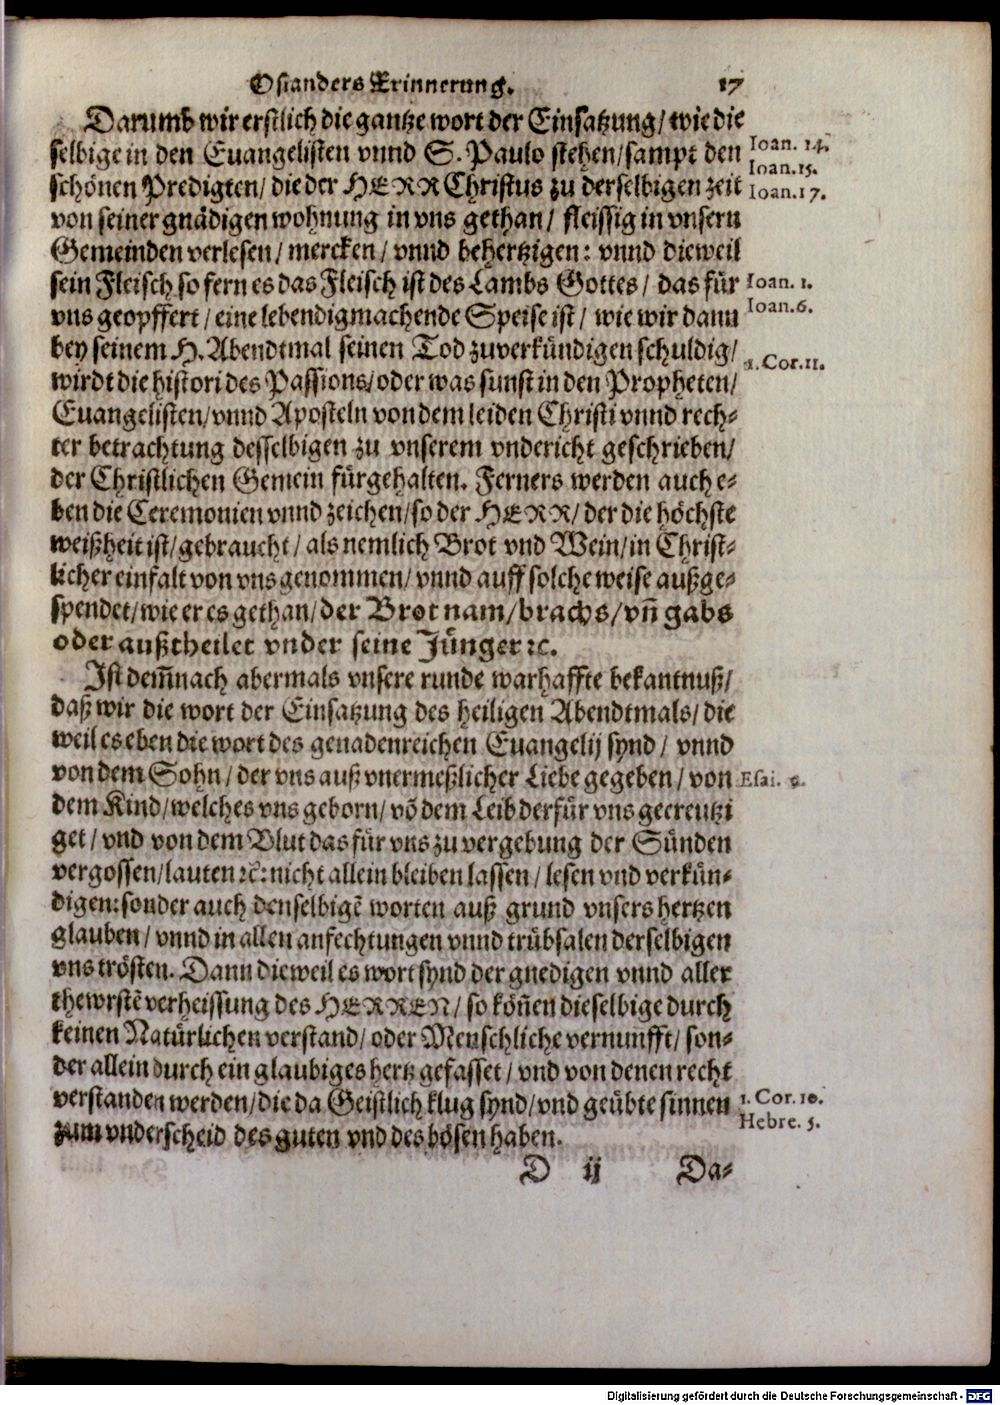 Osianders Erinnerung. 17
Darumb wir erstlich die gantze wort der Einsatzung/ wie die
selbige in den Euangelisten vnnd S. Paulo stehen/ sampt den
Ioan. 14.
Ioan. 15.
schönen Predigten/ die der HERR Christus zu derselbigen zeit
Ioan. 17.
von seiner gnädigen wohnung in vns gethan/ fleissig in vnsern
Gemeinden verlesen/ mercken/ vnnd behertzigen: vnnd dieweil
sein Fleisch so fern es das Fleisch ist des Lambs Gottes/ das für
Ioan. 1.
vns geopffert/ eine lebendigmachende Speise ist/ wie wir dann
Ioan. 6.
bey seinem H. Abendtmal seinen Tod zuverkündigen schuldig/
1. Cor. 11.
wirdt die histori des Passions/ oder was sunst in den Propheten/
Euangelisten/ vnnd Aposteln von dem leiden Christi vnnd rech-
ter betrachtung desselbigen zu vnserem vndericht geschrieben/
der Christlichen Gemein fürgehalten. Ferners werden auch e-
ben die Ceremonien vnnd zeichen/ so der HERR/ der die höchste
weißheit ist/ gebraucht/ als nemlich Brot vnd Wein/ in Christ-
licher einfalt von vns genommen/ vnnd auff solche weise außge-
spendet/ wie er es gethan/ der Brot nam/ brachs/ vñ gabs
oder außtheilet vnder seine Jünger ꝛc.
Ist dem̃nach abermals vnsere runde warhaffte bekantnuß/
daß wir die wort der Einsatzung des heiligen Abendtmals/ die
weil es eben die wort des genadenreichen Euangelij synd/ vnnd
von dem Sohn/ der vns auß vnermeßlicher Liebe gegeben/ von
Esai. 9.
dem Kind/ welches vns geborn/ võ dem Leib der für vns gecreutzi
get/ vnd von dem Blut das für vns zu vergebung der Sünden
vergossen/ lauten ꝛc: nicht allein bleiben lassen/ lesen vnd verkün-
digen: sonder auch denselbigẽ worten auß grund vnsers hertzen
glauben/ vnnd in allen anfechtungen vnnd trübsalen derselbigen
vns trösten. Dann dieweil es wort synd der gnedigen vnnd aller
thewrstẽ verheissung des HERREN/ so köñen dieselbige durch
keinen Natürlichen verstand/ oder Menschliche vernunfft/ son-
der allein durch ein glaubiges hertz gefasset/ vnd von denen recht
verstanden werden/ die da Geistlich klug synd/ vnd geübte sinnen
1. Cor. 10.
Hebre. 5.
zum vnderscheid des guten vnd des bösen haben.
D ij Da-
Digitalisierung gefördert durch die Deutsche Forschungsgemeinschaft - DFG